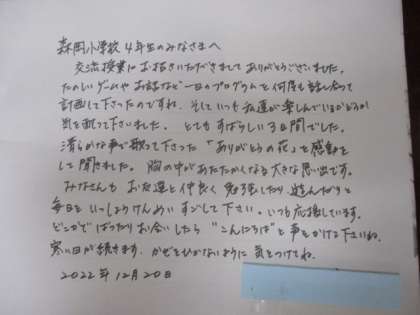 森岡小学校4年生のみなさまへ
交流授業にお招きいただきましてありがとうございました。
たのしいゲームやお話など一日のプログラムを何度も話し合って
計画して下さったのですね。そしていつも友達が楽しんでいるかどうか
気を配って下さいました。とてもすばらしい3日間でした。
清らかな声で歌って下さった「ありがとうの花」を感動を
して聞きました。胸の中があたたかくなる大きな思い出です。
みなさんも お友達と仲良く 勉強したり 遊んだりと
毎日を いっしょうけんめい すごして下さい。いつも応援しています。
どこかで ばったりお会いしたら "こんにちは"と声をかけて下さいね。
寒い日が続きます。かぜをひかないように 気をつけてね。
2022年12月20日